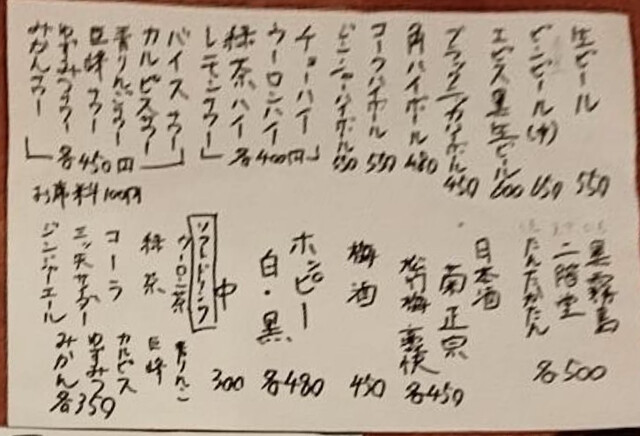 生ビール 550
ビンビール(中) 650
エビス黒生ビール 600
ブラックニッカハイボール 450
角ハイボール 480
コークハイボール 550
ジンジャーハイボール 550
チューハイ
ウーロンハイ
緑茶ハイ
レモンサワー
各400円
バイスサワー
カルピスサワー
青りんごサワー
巨峰サワー
ゆずみつサワー
みかんサワー
各450円
お席料100円
黒霧島
二階堂
たんたかたん
各500
日本酒
菊正宗
松竹梅豪快
各450
梅酒 450
ホッピー
白・黒
各480
中 300
ソフトドリンク
ウーロン茶
緑茶
コーラ
三ツ矢サイダー
ジンジャーエール
青りんご
巨峰
カルピス
ゆずみつ
みかん
各350